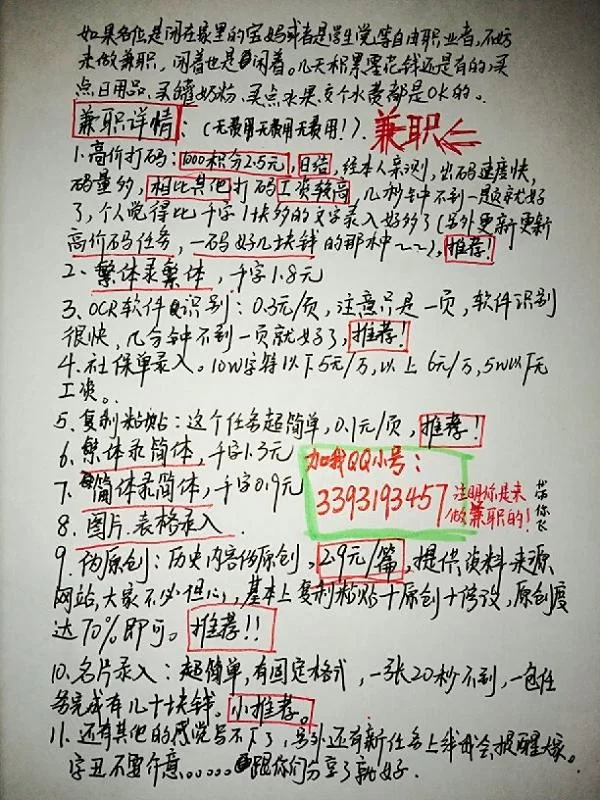 如果各位是闲在家里的宝妈或者是学生党,等自由职业者,不妨
来做兼职,闲着也是闲着。几天积累零花钱还是有的,买
点日用品、买罐奶粉、买点水果、交个水费都是OK的。
兼职详情:(无费用无费用无费用!)、兼职
1.高价打码:1000积分2.5元,日结,经本人亲测,出码速度快,
码量多,相比其他打码工资较高,几秒钟不到一题就好
了,个人觉得比千字1块多的文字录入好多了(另外更新更新
高价码任务,一码好几块钱的那种~~),推荐!
2、繁体录繁体,千字1.8元
3、OCR软件识别:0.3元/页,注意只是一页,软件识别
很快,几分钟不到一页就好了,推荐!
4.社保单录入。10W字符以下5元/万,以上6元/万,5W以下无
工资。
5、复制粘贴:这个任务超简单,0.1元/页,推荐!
6、繁体录简体,千字1.3元
7、简体录简体,千字0.9元
8、图片.表格录入
加我QQ小号:
3393193457
注明你是来
做兼职的!
带你飞
9、伪原创:历史内容伪原创,2.9元/篇,提供资料来源
网站,大家不必担心,基本上复制粘贴+原创+修改,原创度
达70%即可。推荐!!
10、名片录入:超简单,有固定格式,一张20秒不到,一包任
务完成有几十块钱。小推荐。
11、还有其他的感觉写不下了,另外还有新任务上线我会提醒大家。
字丑不要介意……跟你们分享了就好.